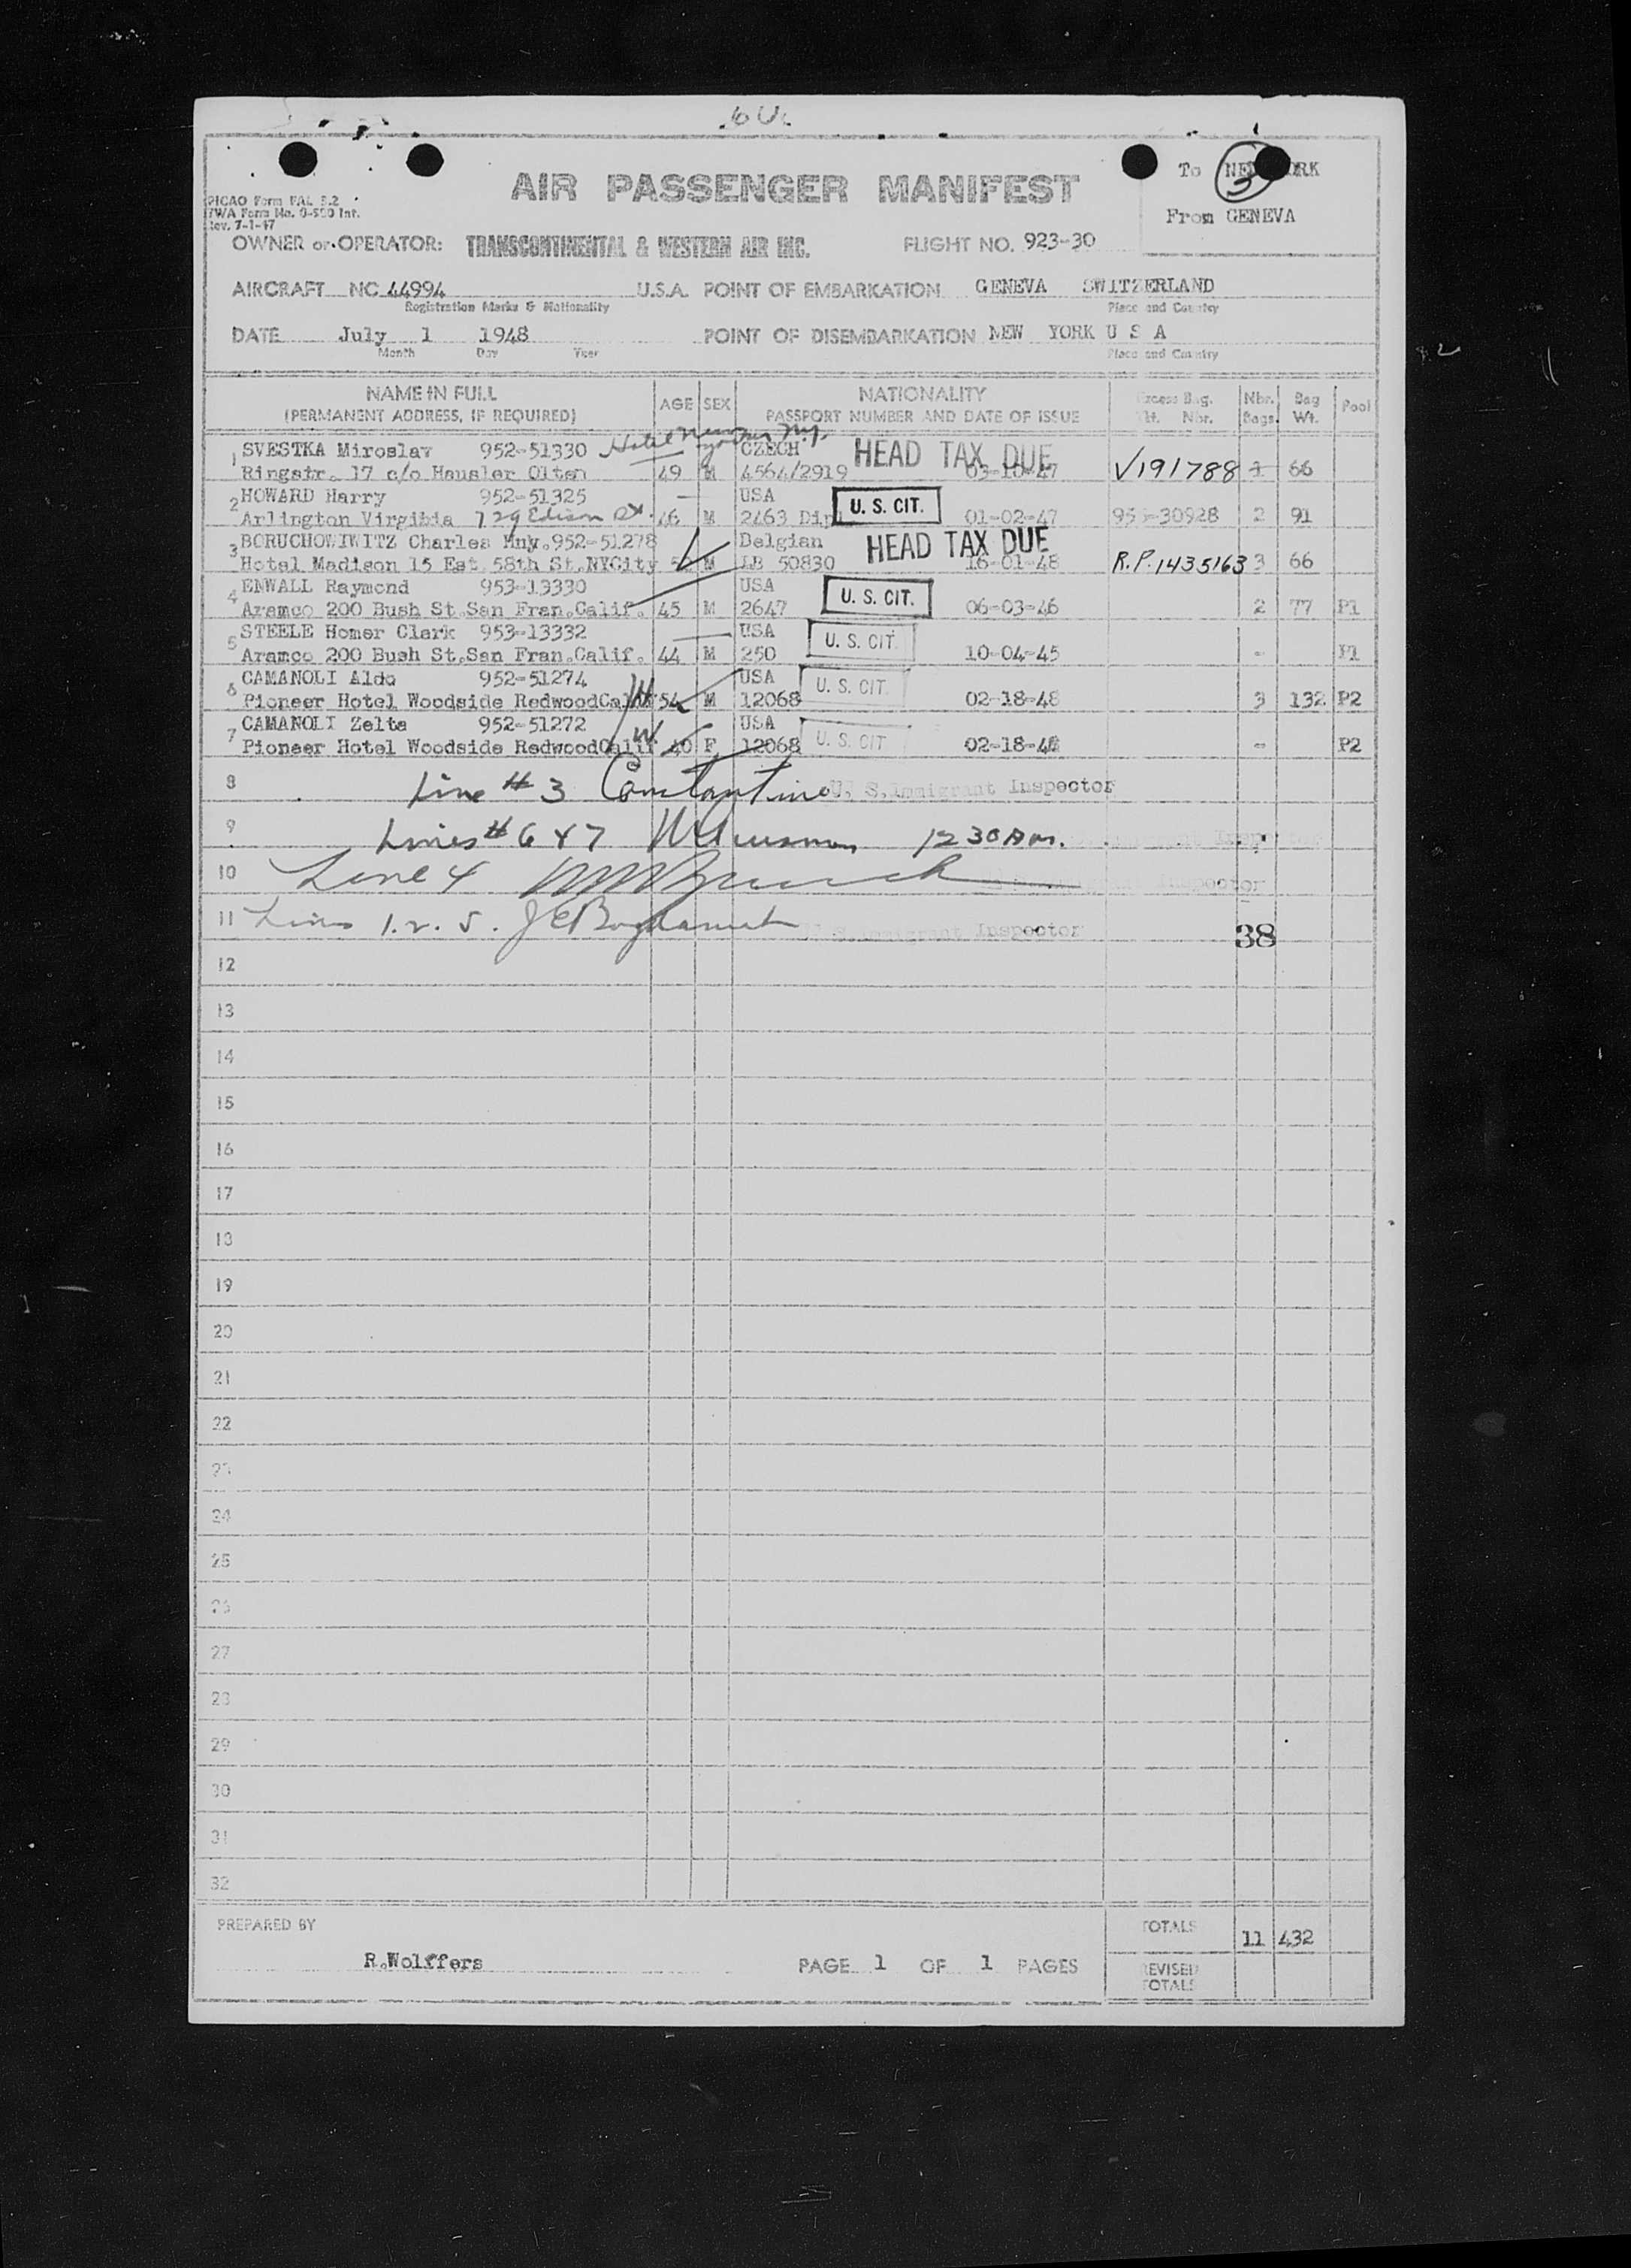 To NEW YORK
3
From GENEVA
AIR PASSENGER MANIFEST
PICAO Form FAL 5.2
TWA Form No. 0-500 Int.
Rev. 7-1-47
OWNER or OPERATOR: TRANSCONTINENTAL & WESTERN AIR INC. FLIGHT NO. 923-30
AIRCRAFT NC 44994 U.S.A. POINT OF EMBARKATION GENEVA SWITZERLAND
Registration Marks & Nationality Place and Country
DATE July 1 1948 POINT OF DISEMBARKATION NEW YORK U S A
Month Day Year Place and Country
NAME IN FULL (PERMANENT ADDRESS, IF REQUIRED) AGE SEX NATIONALITY PASSPORT NUMBER AND DATE OF ISSUE Excess Bag. Nbr. Nbr. Bags. Bag Wt. Pool
1 SVESTKA Miroslav 952-51330 Hotel CZECH HEAD TAX DUE
Ringstr. 17 c/o Hausler Olten 49 M 4564/2919 03-10-47 V191788 66
2 HOWARD Harry 952-51325 USA U. S. CIT.
Arlington Virgibia 729 Edison St. 46 M 2463 Dip 01-02-47 955-30928 2 91
3 BORUCHOWIWITZ Charles Hny.952-51278 Belgian HEAD TAX DUE
Hotel Madison 15 Est 58th St.NYCity 52 M LB 50830 16-01-48 R.P.1435163 3 66
4 ENWALL Raymond 953-13330 USA U. S. CIT.
Aramco 200 Bush St.San Fran.Calif. 45 M 2647 06-03-46 2 77 P1
5 STEELE Homer Clark 953-13332 USA U. S. CIT.
Aramco 200 Bush St.San Fran.Calif. 44 M 250 10-04-45 - P1
6 CAMANOLI Aldo 952-51274 USA U. S. CIT
Pioneer Hotel Woodside RedwoodCalif H 54 M 12068 02-18-48 3 132 P2
7 CAMANOLI Zelta 952-51272 USA U. S. CIT
Pioneer Hotel Woodside RedwoodCalif W 40 F 12068 02-18-48 - P2
8 Line # 3 Constantino U. S. Immigrant Inspector
9 Lines # 6 & 7 12 30 AM. Immigrant Inspector
10 Line 4 Immigrant Inspector
11 Lines 1. 2. 5. U. S. Immigrant Inspector 38
12
13
14
15
16
17
18
19
20
21
22
23
24
25
26
27
28
29
30
31
32
PREPARED BY TOTALS 11 432
R.Wolffers PAGE 1 OF 1 PAGES REVISED TOTALS